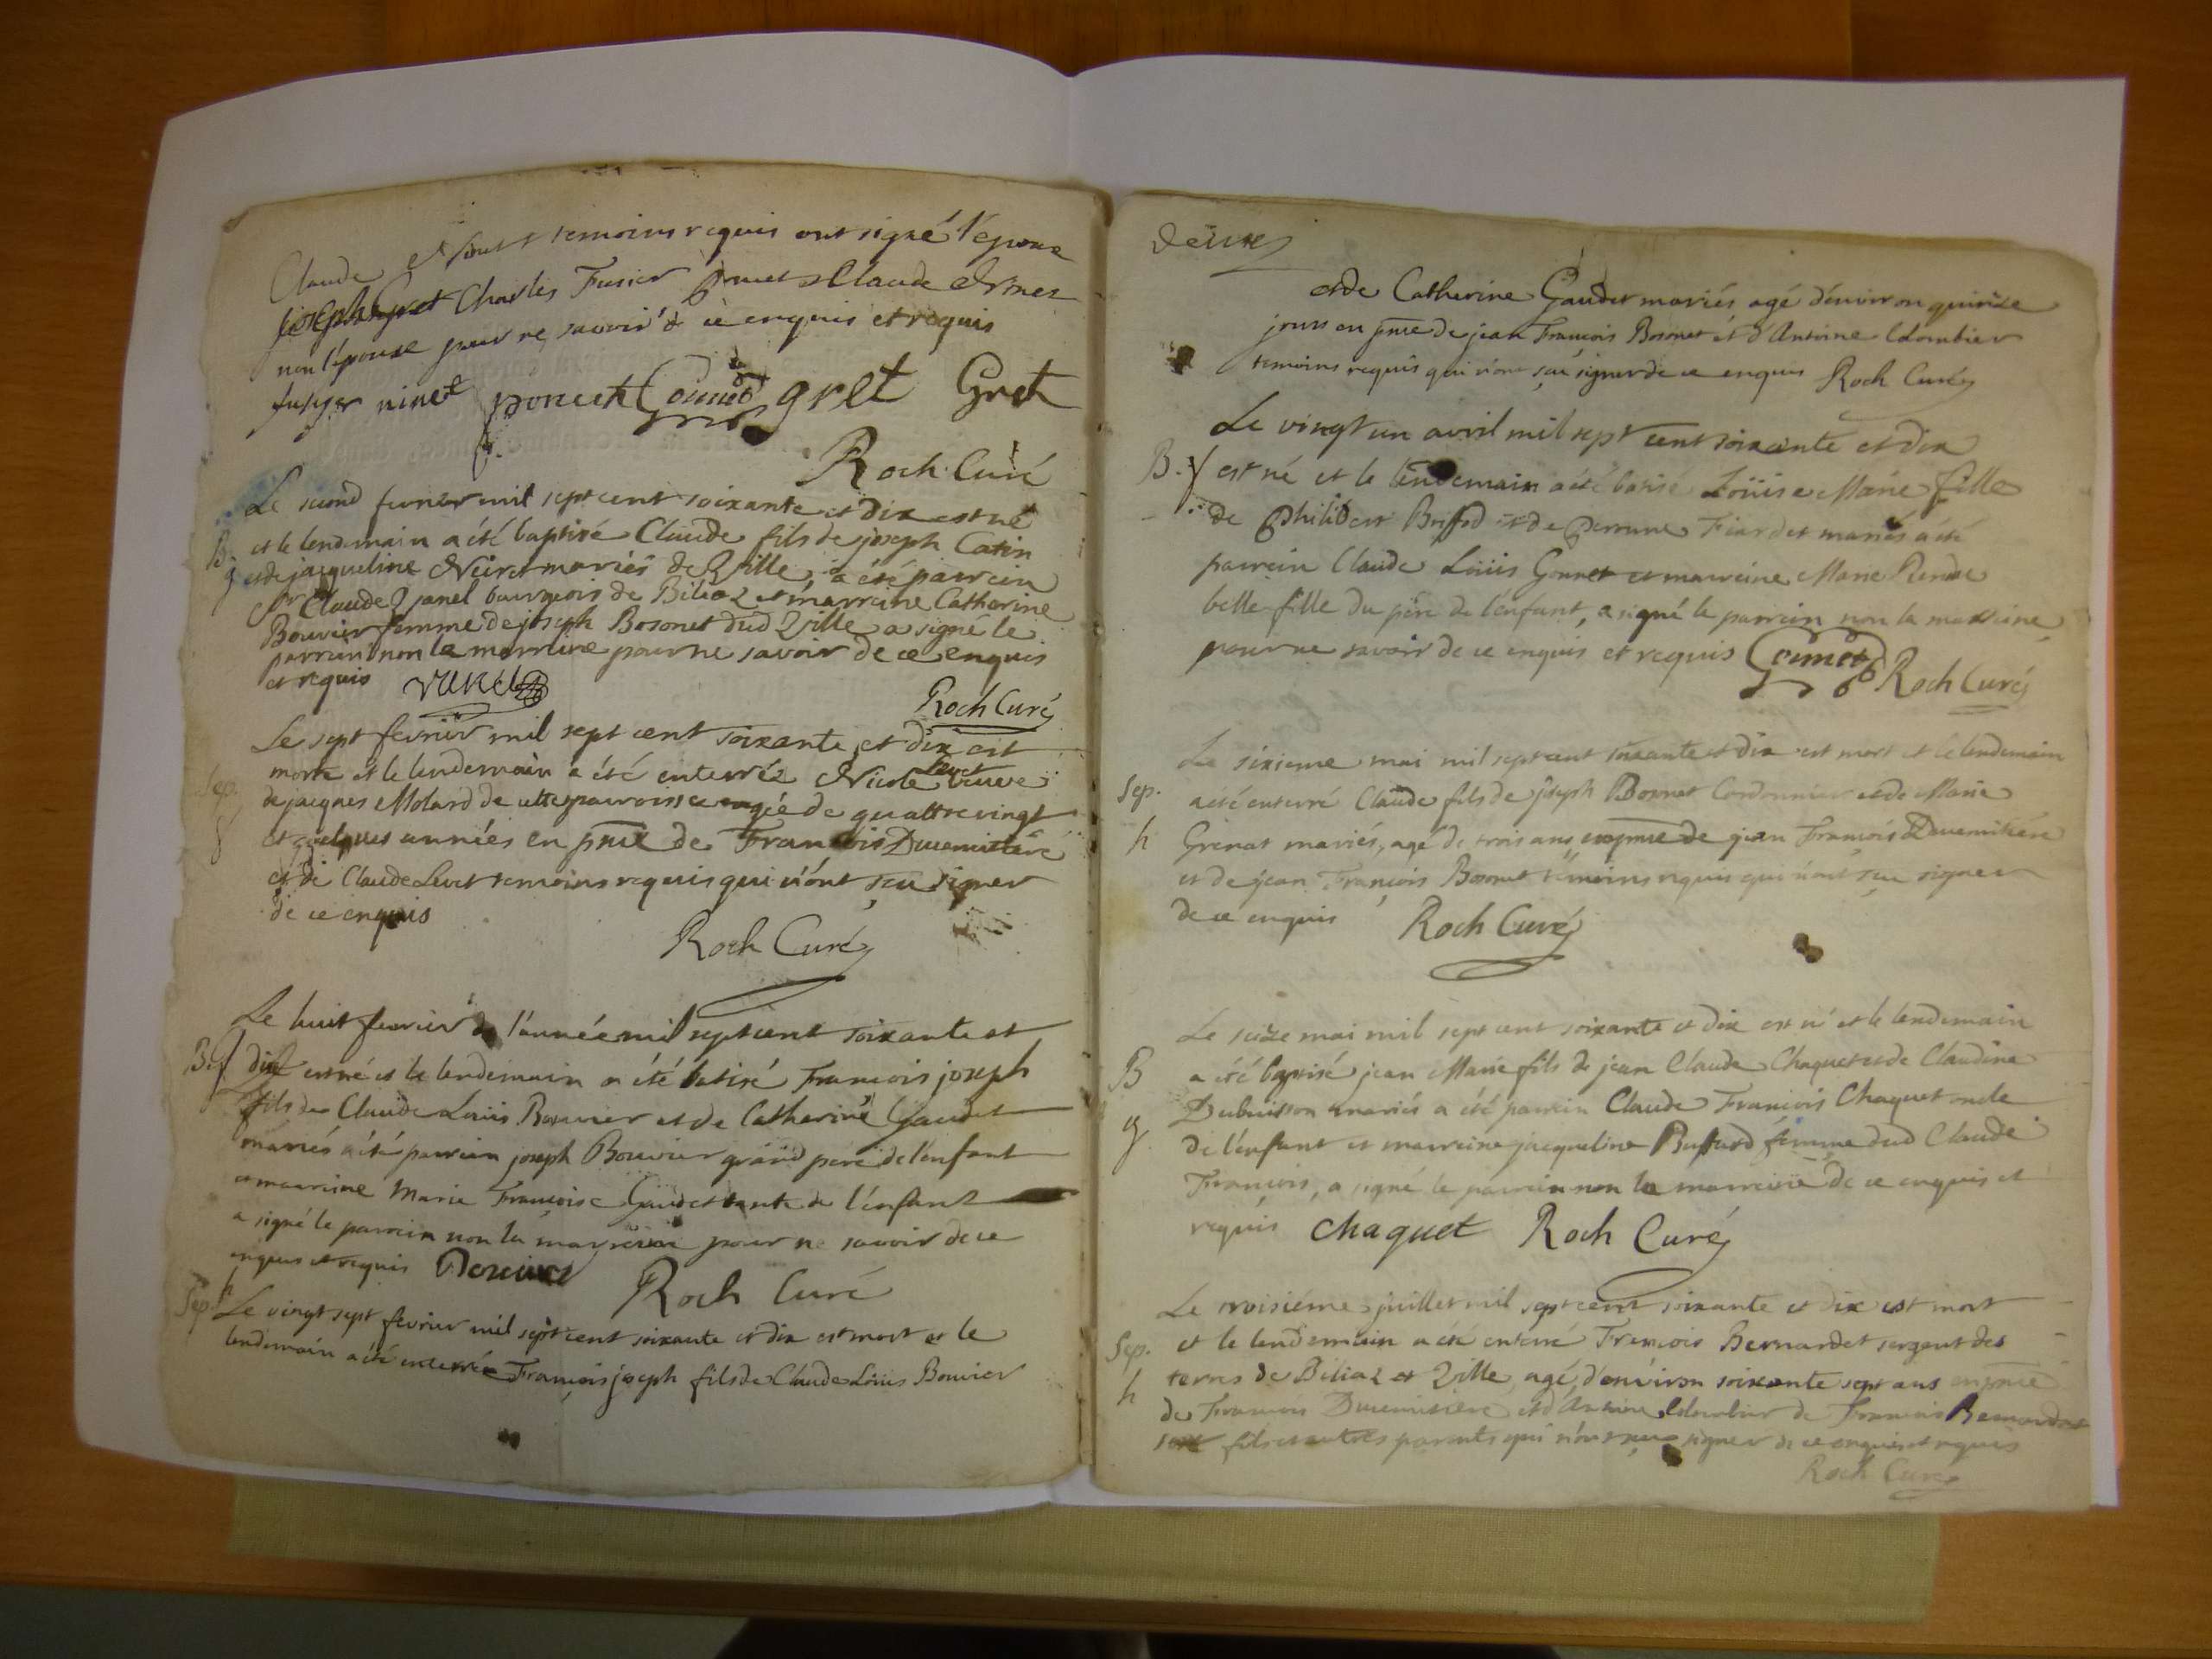 Claude et temoins requis ont signé l'epoux
joseph gret Charles Fusier Claude
non l'epouse pour ne savoir de ce enquis et requis
fusyer ninet poncet Connet gret Gret
Roch Curé
Le second fevrier mil sept cent soixante et dix est né
B. et le lendemain a été baptisé Claude fils de joseph Catin
g et de jacqueline Neiret mariés de Ville, a été parrein
Sr Claude bourgeois de Biliaz et marreine Catherine
Bouvier femme de joseph Bosonet dud Ville a signé le
parrein non la marreine pour ne savoir de ce enquis
et requis
Roch Curé
Le sept fevrier mil sept cent soixante et dix est
Levet
Sep. morte et le lendemain a été enterrée Nicole veuve
f de jacques Molard de cette parroisse agée de quattrevingt
et quelques années en pnce de François Ducemitiére
et de Claude Levet temoins requis qui n'ont sçu signer
de ce enquis
Roch Curé
Le huit fevrier de l'année mil sept cent soixante et
B. g dix est né et le lendemain a été batisé François joseph
fils de Claude Loüis Bouvier et de Catherine Gaudet
mariés a été parrein joseph Bouvier grand pere de l'enfant
et marreine Marie Françoise Gaudet tante de l'enfant
a signé le parrein non la marreine pour ne savoir de ce
enquis et requis Bouvier Roch Curé
Sep. h Le vingt sept fevrier mil sept cent soixante et dix est mort et le
lendemain a été enterrée François joseph fils de Claude Loüis Bouvier
deux
et de Catherine Gaudet mariés agé d'environ quinze
jours en pnce de jean François Bosonet et d'Antoine Colombier
temoins requis qui n'ont sçu signer de ce enquis Roch Curé
Le vingt un avril mil sept cent soixante et dix
B. f est né et le lendemain a été batisé Loüise Marie fille
de Philibert Briffod et de Perrine Fiardet mariés a été
parrein Claude Loüis Gonnet et marreine Marie
belle fille du père de l'enfant, a signé le parrein non la marreine
pour ne savoir de ce enquis et requis Connet Roch Curé
Le sixieme mai mil sept cent soixante et dix est mort et le lendemain
Sep. a été enterré Claude fils de joseph Bosonet Cordonnier et de Marie
h Grenat mariés, agé de trois ans en pnce de jean François Ducemitiére
et de jean François Bosonet temoins requis qui n'ont sçu signer
de ce enquis Roch Curé
Le seize mai mil sept cent soixante et dix est né et le lendemain
B a été baptisé jean Marie fils de jean Claude Chaquet et de Claudine
g Dubuisson mariés a été parrein Claude François Chaquet oncle
de l'enfant et marreine jacqueline Buffard femme dud Claude
François, a signé le parrein non la marreine de ce enquis et
requis chaquet Roch Curé
Le troisiéme juillet mil sept cent soixante et dix est mort
Sep. et le lendemain a été enterré François Bernardet sergent des
h terres de Biliaz et Ville, agé d'environ soixante sept ans en pnce
de François Ducemitiére et d'Antoine Colombier de François Bernardet
son fils et autres parents qui n'ont sçu signer de ce enquis et requis
Roch Curé